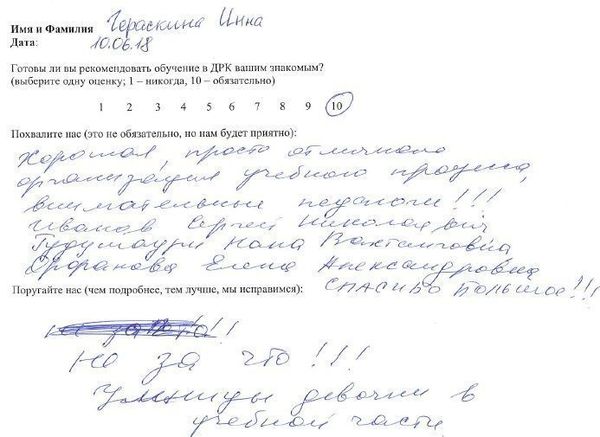 Имя и Фамилия Гераскина Инна
Дата: 10.06.18
Готовы ли вы рекомендовать обучение в ДРК вашим знакомым?
(выберите одну оценку; 1 – никогда, 10 – обязательно)
1 2 3 4 5 6 7 8 9 10
Похвалите нас (это не обязательно, но нам будет приятно):
Хорошая, просто отличная
организация учебного процесса,
внимательные педагоги!!!
Иванов Сергей Николаевич
Гудушаури Нана Вахтанговна
Елена Александровна
Поругайте нас (чем подробнее, тем лучше, мы исправимся): СПАСИБО БОЛЬШОЕ!!!
не за что!!!
Умницы девочки в
учебной части